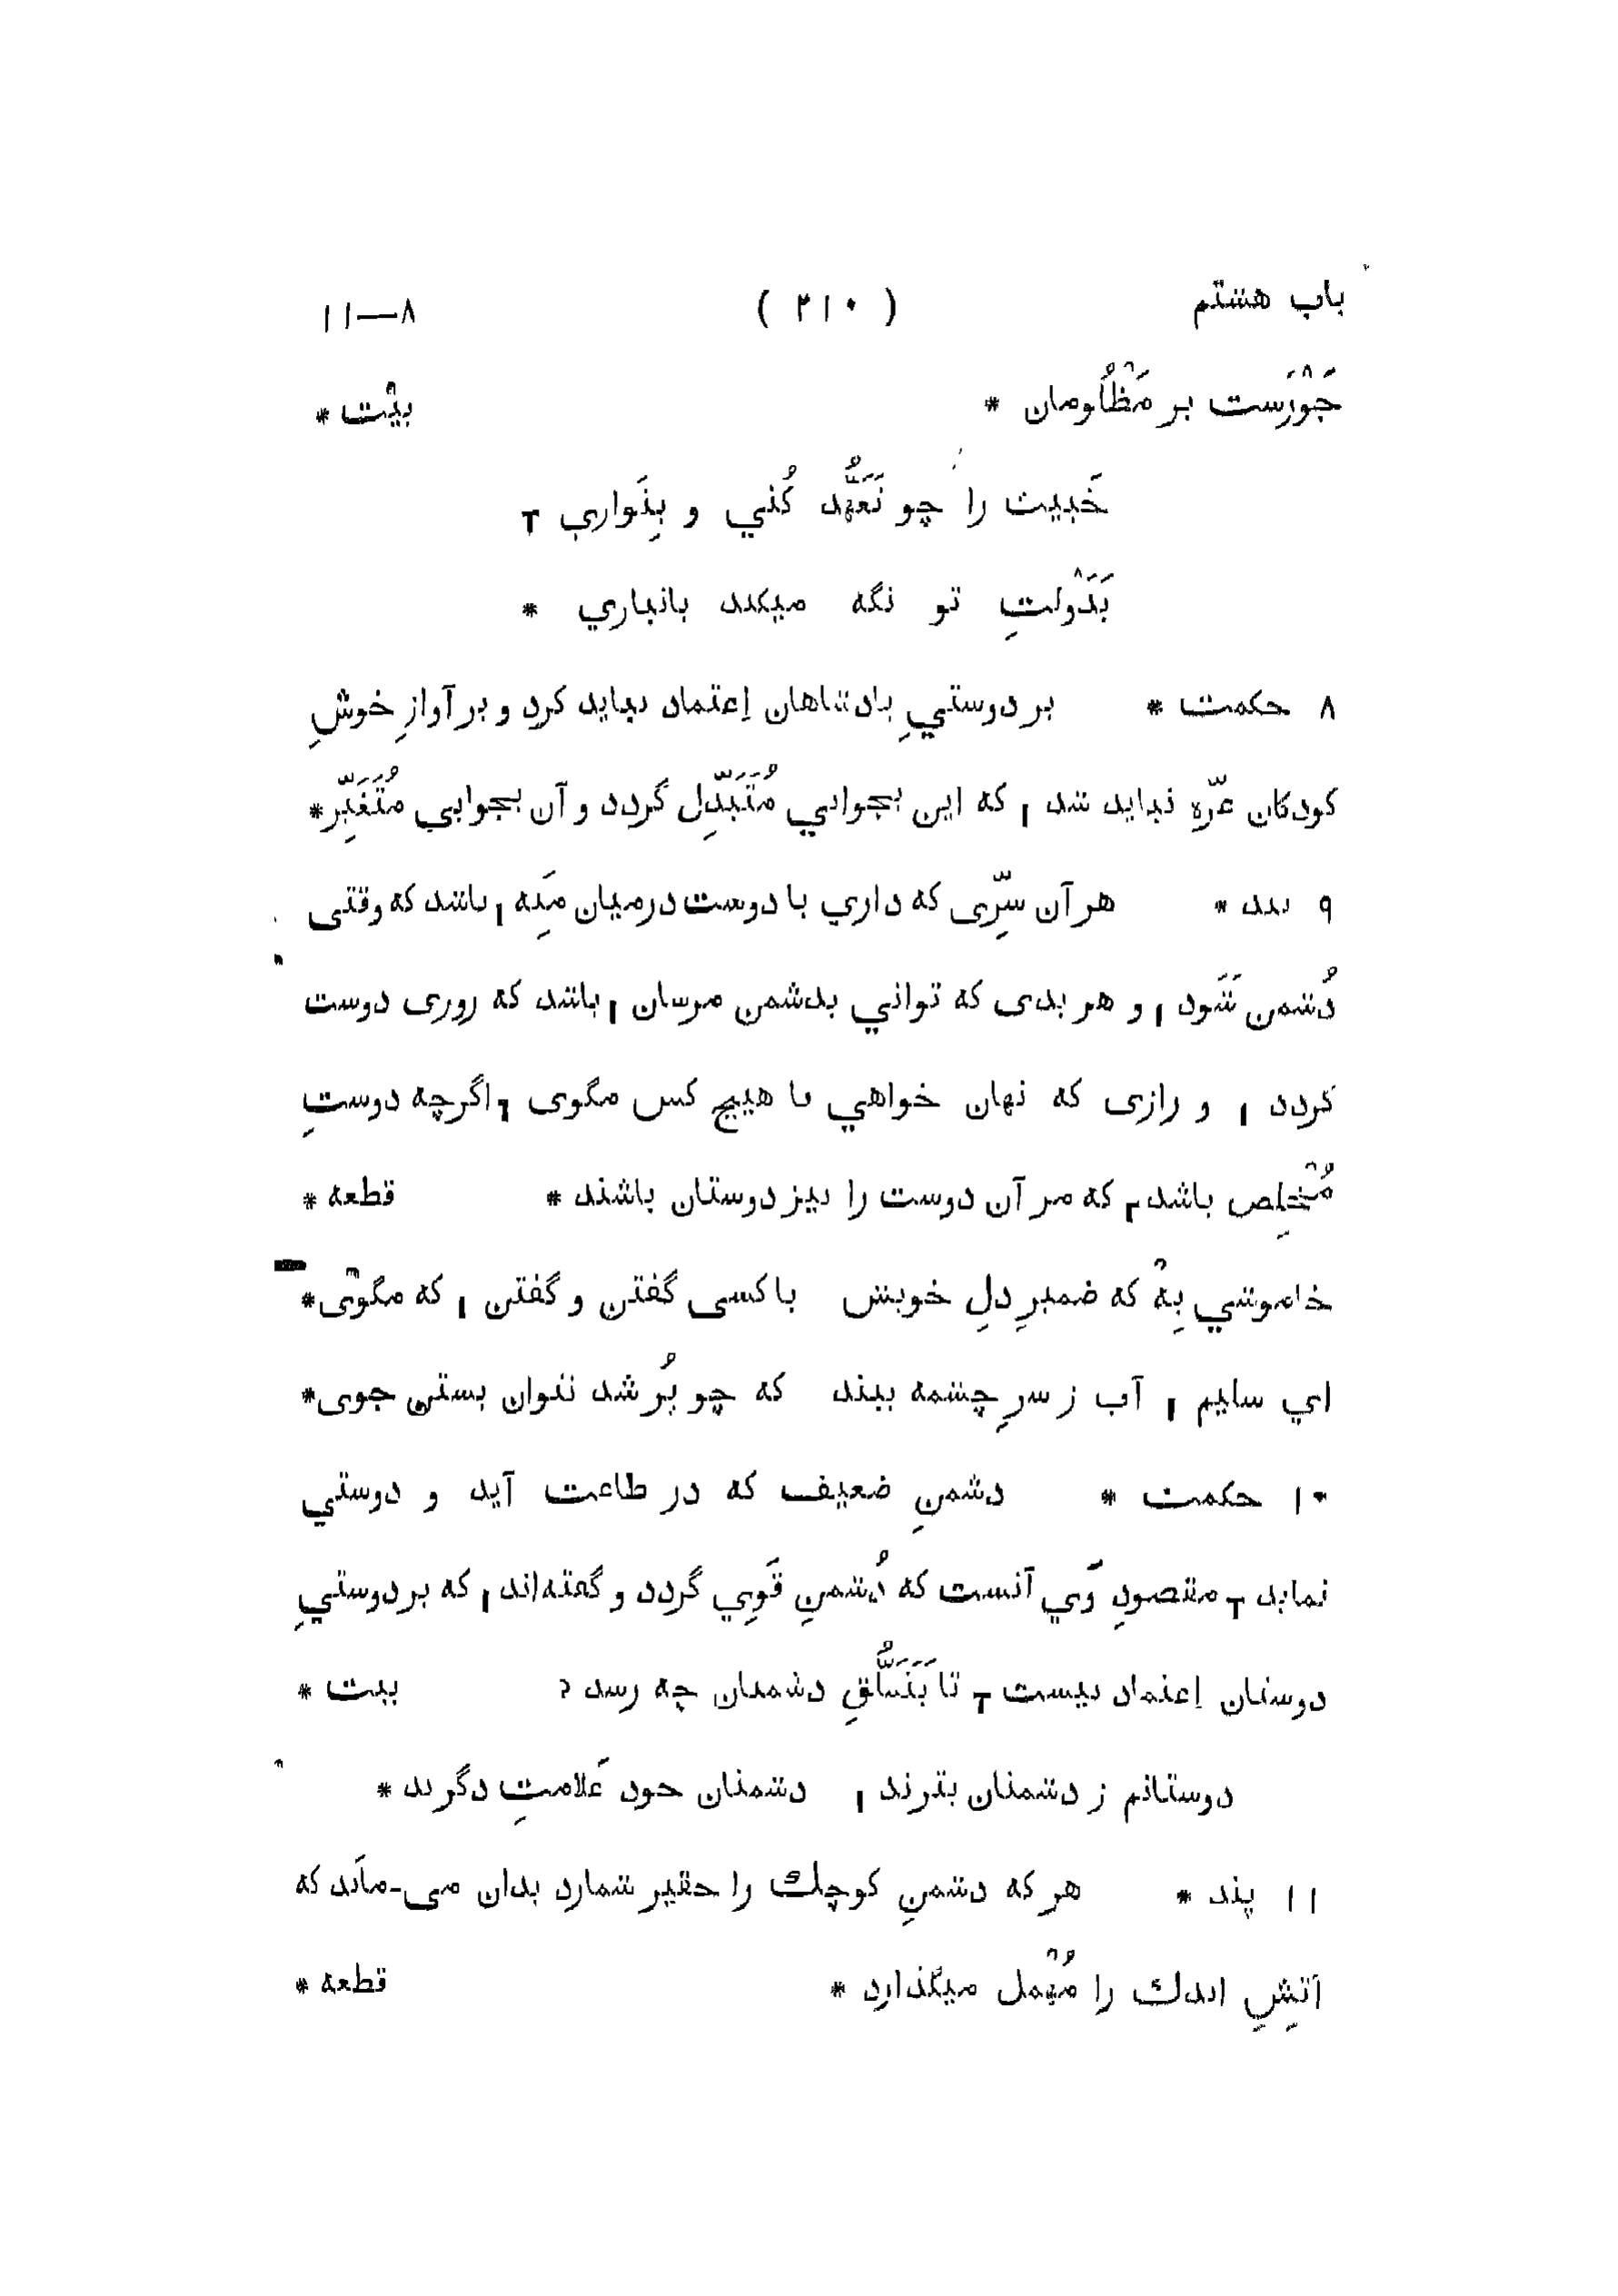 باب هشتم ( ۲۱۰ ) ۸—۱۱
جَوْرَست بر مَظْلُومان * بیْت *
خَبیث را چو تَعَهُّد کُني و بِنَوازي
بَدَوْلتِ تو نگه میکند بانبازي *
۸ حکمت * بر دوستيِ پادشاهان اِعتماد نباید کرد و بر آوازِ خوشِ
کودکان غرّه نباید شد که این بخوابي مُتَبَدِّل گردد و آن بخوابي مُتَغَیِّر *
۹ پند * هر آن سِرّی که داري با دوست درمیان مَنِه باشد که وقتی
دُشمن شَوَد و هر بدی که تواني بدشمن مرسان باشد که روزی دوست
گردد و رازی که نهان خواهي با هیچ کس مگوی اگرچه دوستِ
مُخْلِص باشد که مر آن دوست را نیز دوستان باشند * قطعه *
خاموشي بِهْ که ضمیرِ دلِ خویش با کسی گفتن و گفتن که مگوْی *
اي سلیم آب ز سرِ چشمه ببند که چو پُر شد نتوان بستن جوی *
۱۰ حکمت * دشمنِ ضعیف که در طاعت آید و دوستي
نماید مقصودِ وَي آنست که دُشمنِ قَوِي گردد و گفته‌اند که بر دوستيِ
دوستان اِعتماد نیست تا بَتَمَلُّقِ دشمنان چه رسد ؟ بیت *
دوستانم ز دشمنان بترند دشمنان خود عَلامتِ دگرند *
۱۱ پند * هر که دشمنِ کوچك را حقیر شمارد بدان می-مانَد که
آتِشِ اندك را مُهْمل میگذارد * قطعه *